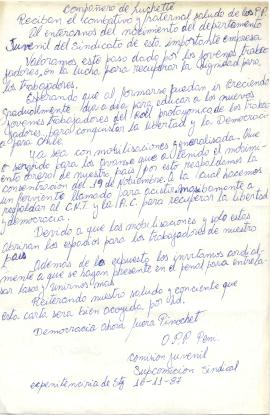 Compañero de Luchette
Reciban el combativo y fraternal saludo de los P.P.
Al enterarnos del nacimiento del departamento
Juvenil del Sindicato de esta importante empresa
Valoramos este paso dado por los jovenes traba-
jadores, en la lucha para recuperar la dignidad para
los trabajadores.
Esperando que al formarse puedan ir creciendo
gradualmente dia a dia, para educar a los nuevos
jovenes trabajadores del Roll protagonico de los traba-
jadores, para conquistar la libertad y la Democracia
para Chile.
Ya sea con mobilisaciones generalisada. Que
a servido para los avances que a tenido el movimi-
ento obrero de nuestro pais, por esto respaldamos la
consentracion del 19 de Noviembre. A la cual hacemos
un ferviente llamado para acudir masibamente a
respaldar al C.N.T y la A.C. para recuperar la libertad
y democracia.
Devido a que las mobilisaciones y solo estas
abriran los espacios para los trabajadores de nuestro
pais
Ademas de lo expuesto los invitamos cordial-
mente a que se hagan presente en el penal para entrela-
sar lasos y unirnos mas
Reiterando nuestro saludo y conciente que
esta carta sera bien acogida por Ud.
Democracia ahora fuera Pinochet
O.P.P Pen.
Comision Juvenil
Subcomicion Sindical
expenitenciaria de Stg 16-11-87